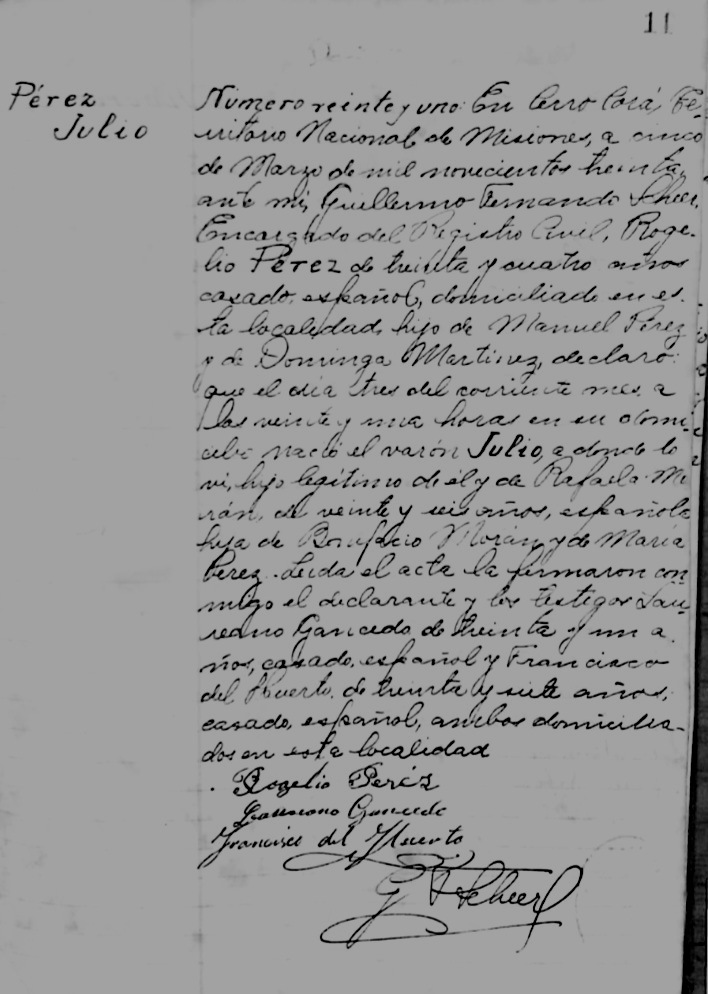 11
Pérez
Julio
Número veinte y uno: En Cerro Corá, Te-
rritorio Nacional de Misiones, a cinco
de Marzo de mil novecientos treinta,
ante mi, Guillermo Fernando Scheer,
Encargado del Registro Civil, Roge-
lio Pérez de treinta y cuatro años
casado, español, domiciliado en es-
ta localidad, hijo de Manuel Pérez
y de Dominga Martinez, declaró:
que el dia tres del corriente mes a
las veinte y una horas en su domi-
cilio nació el varón Julio, a donde lo
vi, hijo legítimo de él y de Rafaela Mo
rán, de veinte y seis años, española
hija de Bonifacio Morán y de Maria
Perez. Leida el acta la firmaron con
migo el declarante y los testigos Lau-
reano Gancedo de treinta y un a
ños, casado, español y Francisco
del Huerto, de treinta y siete años,
casado, español, ambos domicilia-
dos en esta localidad
Rogelio Peréz
Laureano Gancedo
Francisco del Huerto
G F Scheer